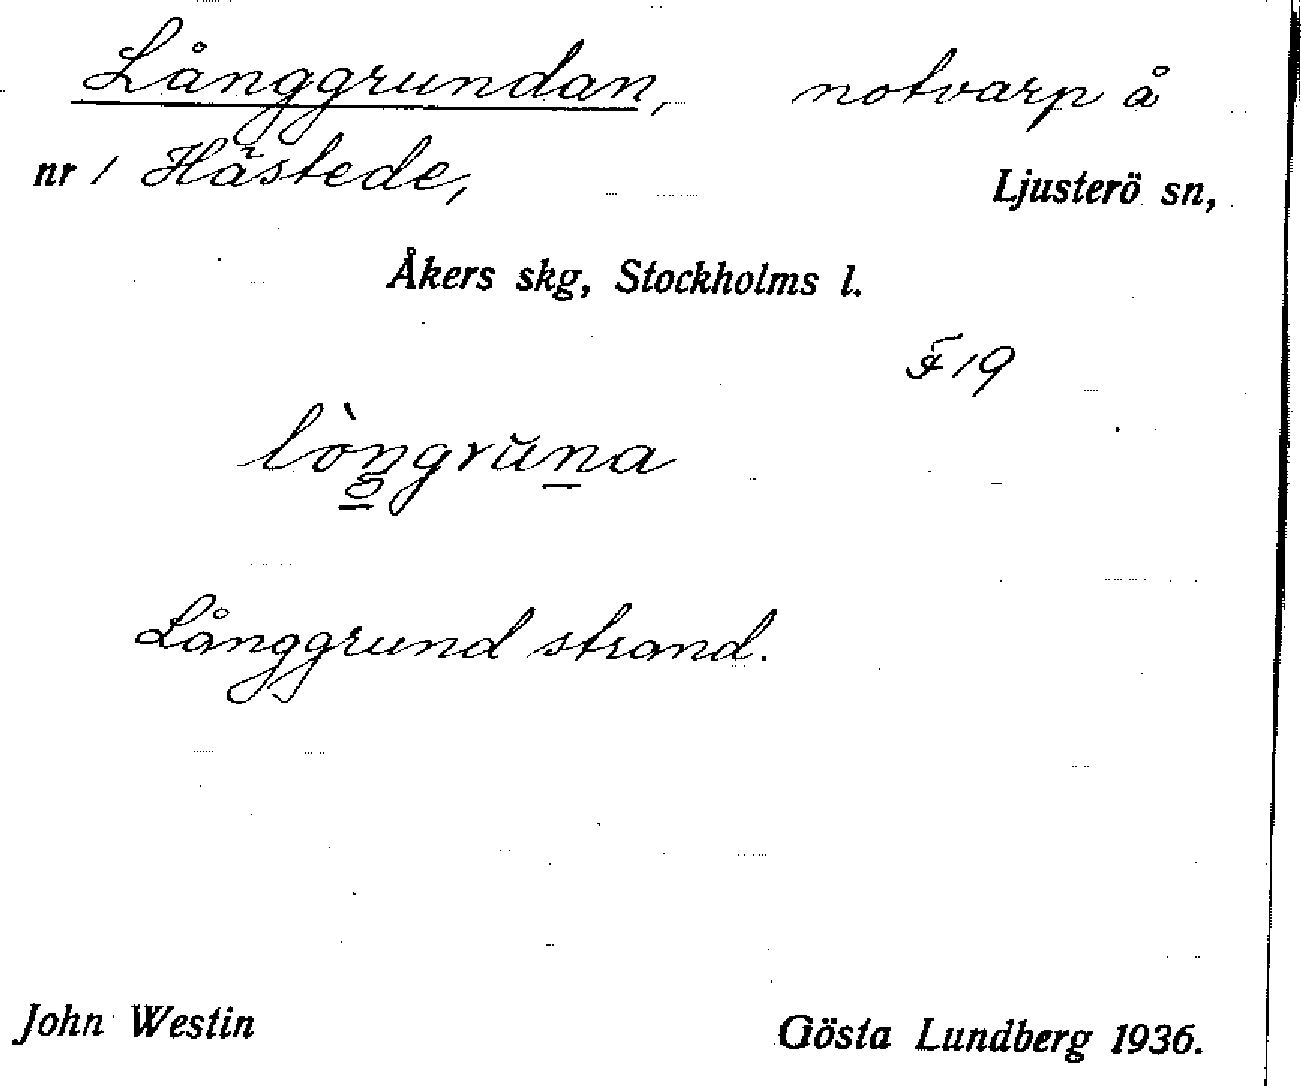 Långgrundan, notvarp å
nr 1 Hästede, Ljusterö sn,
Åkers skg, Stockholms l.
F 19
Långgrund strand.
John Westin Gösta Lundberg 1936.